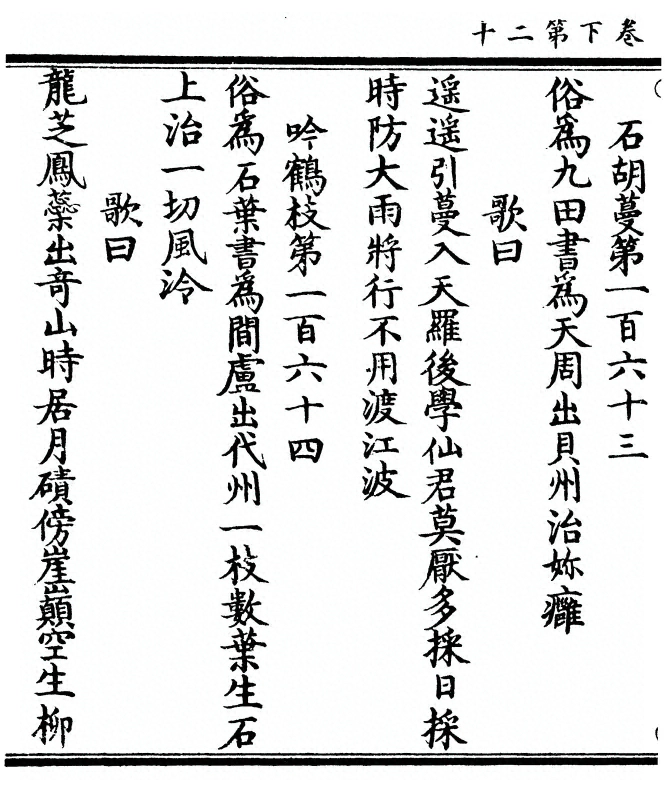 卷下第二十
石胡蔓第一百六十三
俗為九田書為天周出貝州治妳癰
歌曰
遥遥引蔓入天羅後學仙君莫厭多採日採
時防大雨將行不用渡江波
吟鶴枝第一百六十四
俗為石葉書為間盧出代州一枝數葉生石
上治一切風冷
歌曰
龍芝鳳蘂出竒山時居月磧傍崖巔空生柳